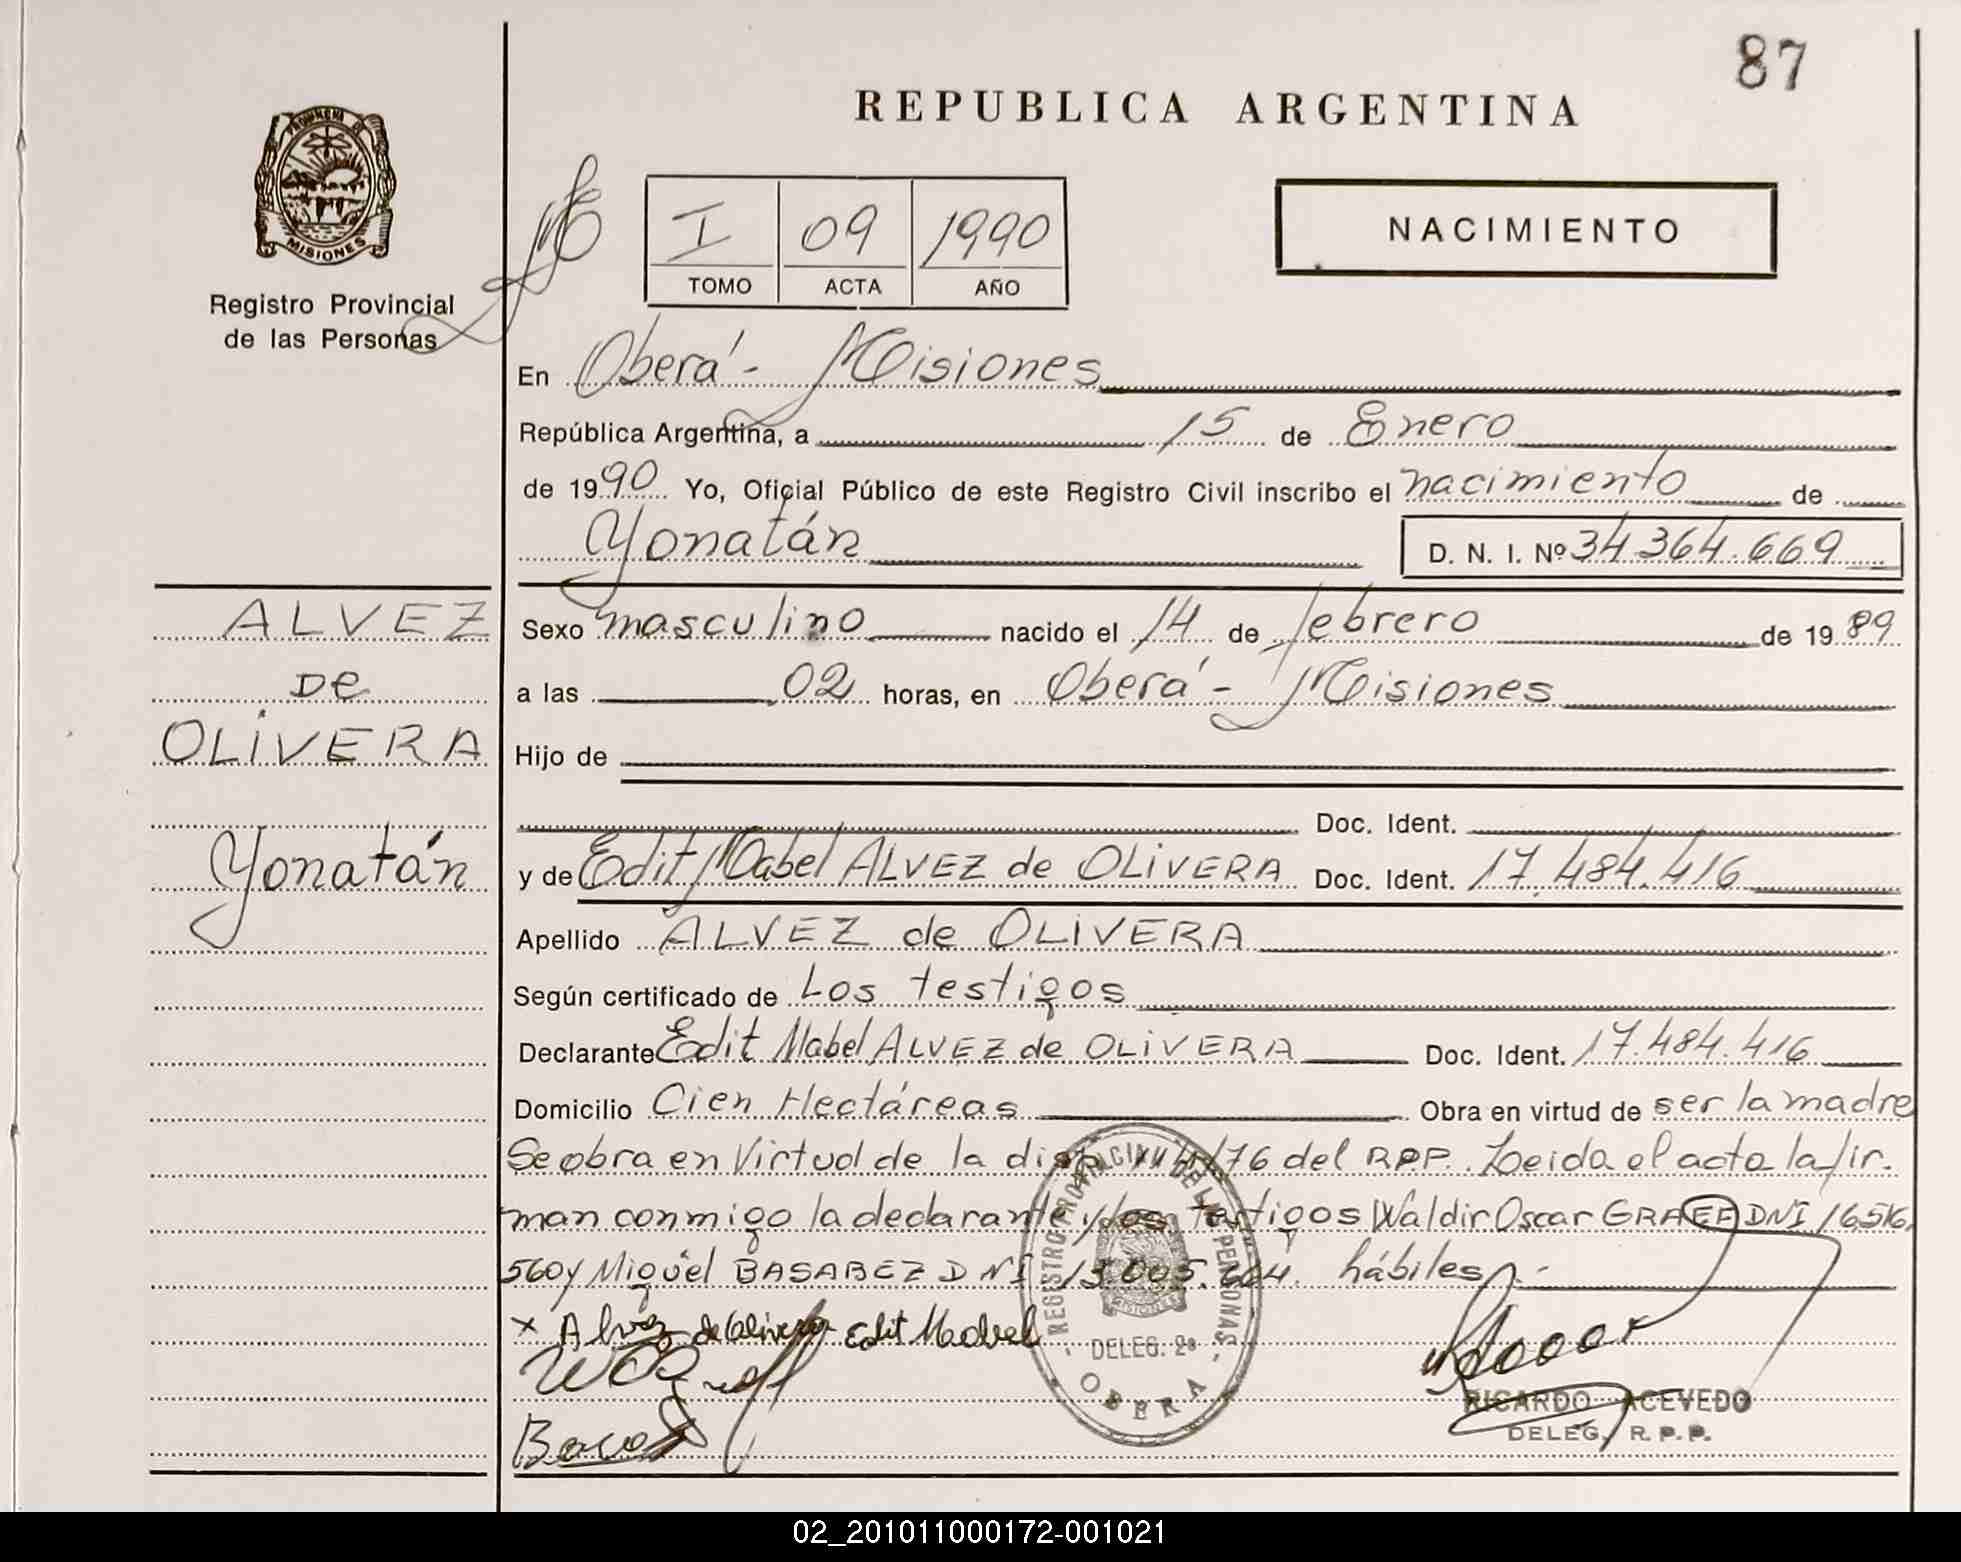 87
REPUBLICA ARGENTINA
PROVINCIA DE
MISIONES
Registro Provincial
de las Personas
I 09 1990
TOMO ACTA AÑO
NACIMIENTO
En Oberá - Misiones
República Argentina, a 15 de Enero
de 1990 Yo, Oficial Público de este Registro Civil inscribo el nacimiento de
Yonatán D. N. I. Nº 34.364.669
ALVEZ
DE
OLIVERA
Yonatán
Sexo masculino nacido el 14 de febrero de 1989
a las 02 horas, en Oberá - Misiones
Hijo de
Doc. Ident.
y de Edit Mabel ALVEZ de OLIVERA Doc. Ident. 17.484.416
Apellido ALVEZ de OLIVERA
Según certificado de Los testigos
Declarante Edit Mabel ALVEZ de OLIVERA Doc. Ident. 17.484.416
Domicilio Cien Hectáreas Obra en virtud de ser la madre
Se obra en Virtud de la disp. /76 del RPP. Leida el acta la fir.
man conmigo la declarante y los testigos Waldir Oscar GRAEF DNI 16.516.
560 y Miguel BASABEZ DNI hábiles.-
x Alvez de Olivera Edit Madvel
REGISTRO PROVINCIAL DE LAS PERSONAS
MISIONES
- DELEG. 2ª -
OBERA
RICARDO ACEVEDO
DELEG. R. P. P.
02_201011000172-001021